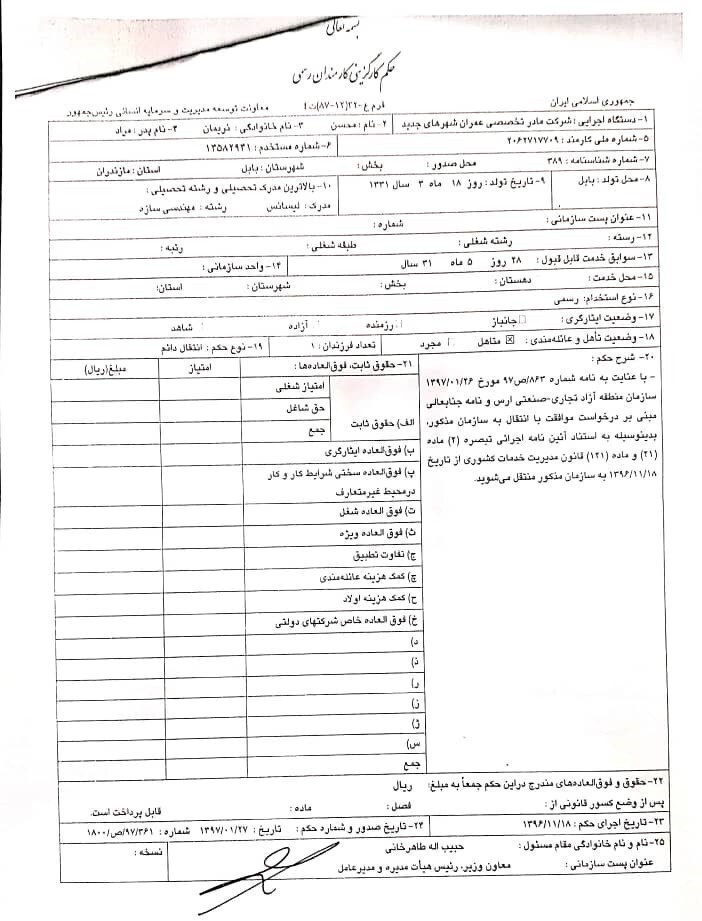 بسمه تعالی
حکم کارگزینی کارمندان رسمی
جمهوری اسلامی ایران
فرم ع-۲۱(۱۲-۸۷)ت۴
معاونت توسعه مدیریت و سرمایه انسانی رئیس‌جمهور
۱- دستگاه اجرایی : شرکت مادر تخصصی عمران شهرهای جدید ۲- نام : محسن ۳- نام خانوادگی : نریمان ۴- نام پدر : مراد
۵- شماره ملی کارمند : ۲۰۶۲۷۱۷۷۰۹ ۶- شماره مستخدم : ۱۳۵۸۲۹۳۱
۷- شماره شناسنامه : ۳۸۹ محل صدور : بخش : شهرستان : بابل استان : مازندران
۸- محل تولد : بابل ۹- تاریخ تولد : روز ۱۸ ماه ۳ سال ۱۳۳۱ ۱۰- بالاترین مدرک تحصیلی و رشته تحصیلی :
مدرک : لیسانس رشته : مهندسی سازه
۱۱- عنوان پست سازمانی : شماره :
۱۲- رسته : رشته شغلی : طبقه شغلی : رتبه :
۱۳- سوابق خدمت قابل قبول : ۲۸ روز ۵ ماه ۳۱ سال ۱۴- واحد سازمانی :
۱۵- محل خدمت : دهستان : بخش : شهرستان : استان:
۱۶- نوع استخدام: رسمی
۱۷- وضعیت ایثارگری : □جانباز □رزمنده آزاده شاهد
۱۸- وضعیت تأهل و عائله‌مندی : ☒ متاهل □ مجرد تعداد فرزندان : ۱ ۱۹- نوع حکم : انتقال دائم
۲۰- شرح حکم :
- با عنایت به نامه شماره ۸۶۳/ص۹۷ مورخ ۱۳۹۷/۰۱/۲۶
سازمان منطقه آزاد تجاری-صنعتی ارس و نامه جنابعالی
مبنی بر درخواست موافقت با انتقال به سازمان مذکور،
بدینوسیله به استناد آئین نامه اجرائی تبصره (۲) ماده
(۲۱) و ماده (۱۲۱) قانون مدیریت خدمات کشوری از تاریخ
۱۳۹۶/۱۱/۱۸ به سازمان مذکور منتقل می‌شوید.
۲۱- حقوق ثابت، فوق‌العاده‌ها : امتیاز مبلغ(ریال)
الف) حقوق ثابت
امتیاز شغلی
حق شاغل
جمع
ب) فوق‌العاده ایثارگری
پ) فوق‌العاده سختی شرایط کار و کار
درمحیط غیرمتعارف
ت) فوق العاده شغل
ث) فوق العاده ویژه
ج) تفاوت تطبیق
چ) کمک هزینه عائله‌مندی
ح) کمک هزینه اولاد
خ) فوق العاده خاص شرکتهای دولتی
د)
ذ)
ر)
ز)
ژ)
س)
جمع
۲۲- حقوق و فوق‌العاده‌های مندرج دراین حکم جمعاً به مبلغ: ریال
پس از وضع کسور قانونی از : فصل : ماده : قابل پرداخت است.
۲۳- تاریخ اجرای حکم : ۱۳۹۶/۱۱/۱۸ ۲۴- تاریخ صدور و شماره حکم : تاریخ : ۱۳۹۷/۰۱/۲۷ شماره : ۹۷/۳۶۱/ص/۱۸۰۰
۲۵- نام و نام خانوادگی مقام مسئول : حبیب اله طاهرخانی
عنوان پست سازمانی : معاون وزیر، رئیس هیأت مدیره و مدیرعامل
نسخه :